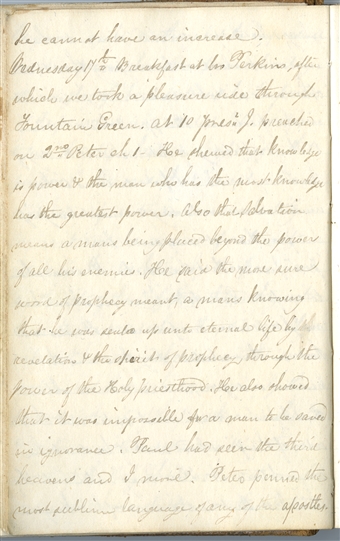 he cannot have an increase.
Wednesday 17th Breakfast at bro Perkins, after
which we took a pleasure ride through
Fountain Green. At 10 Prest J. preached
on 2nd Peter ch 1- He shewed that knowledge
is power & the man who has the most knowledge
has the greatest power. Also that salvation
means a mans being placed beyond the power
of all his enemies. He said the more sure
word of prophecy meant, a mans knowing
that he was sealed up unto eternal life by
revelation & the spirit of prophecy through the
power of the Holy priesthood. He also showed
that it was impossible for a man to be saved
in ignorance. Paul had seen the third
heavens and I more. Peter penned the
most sublime language of any of the apostles.